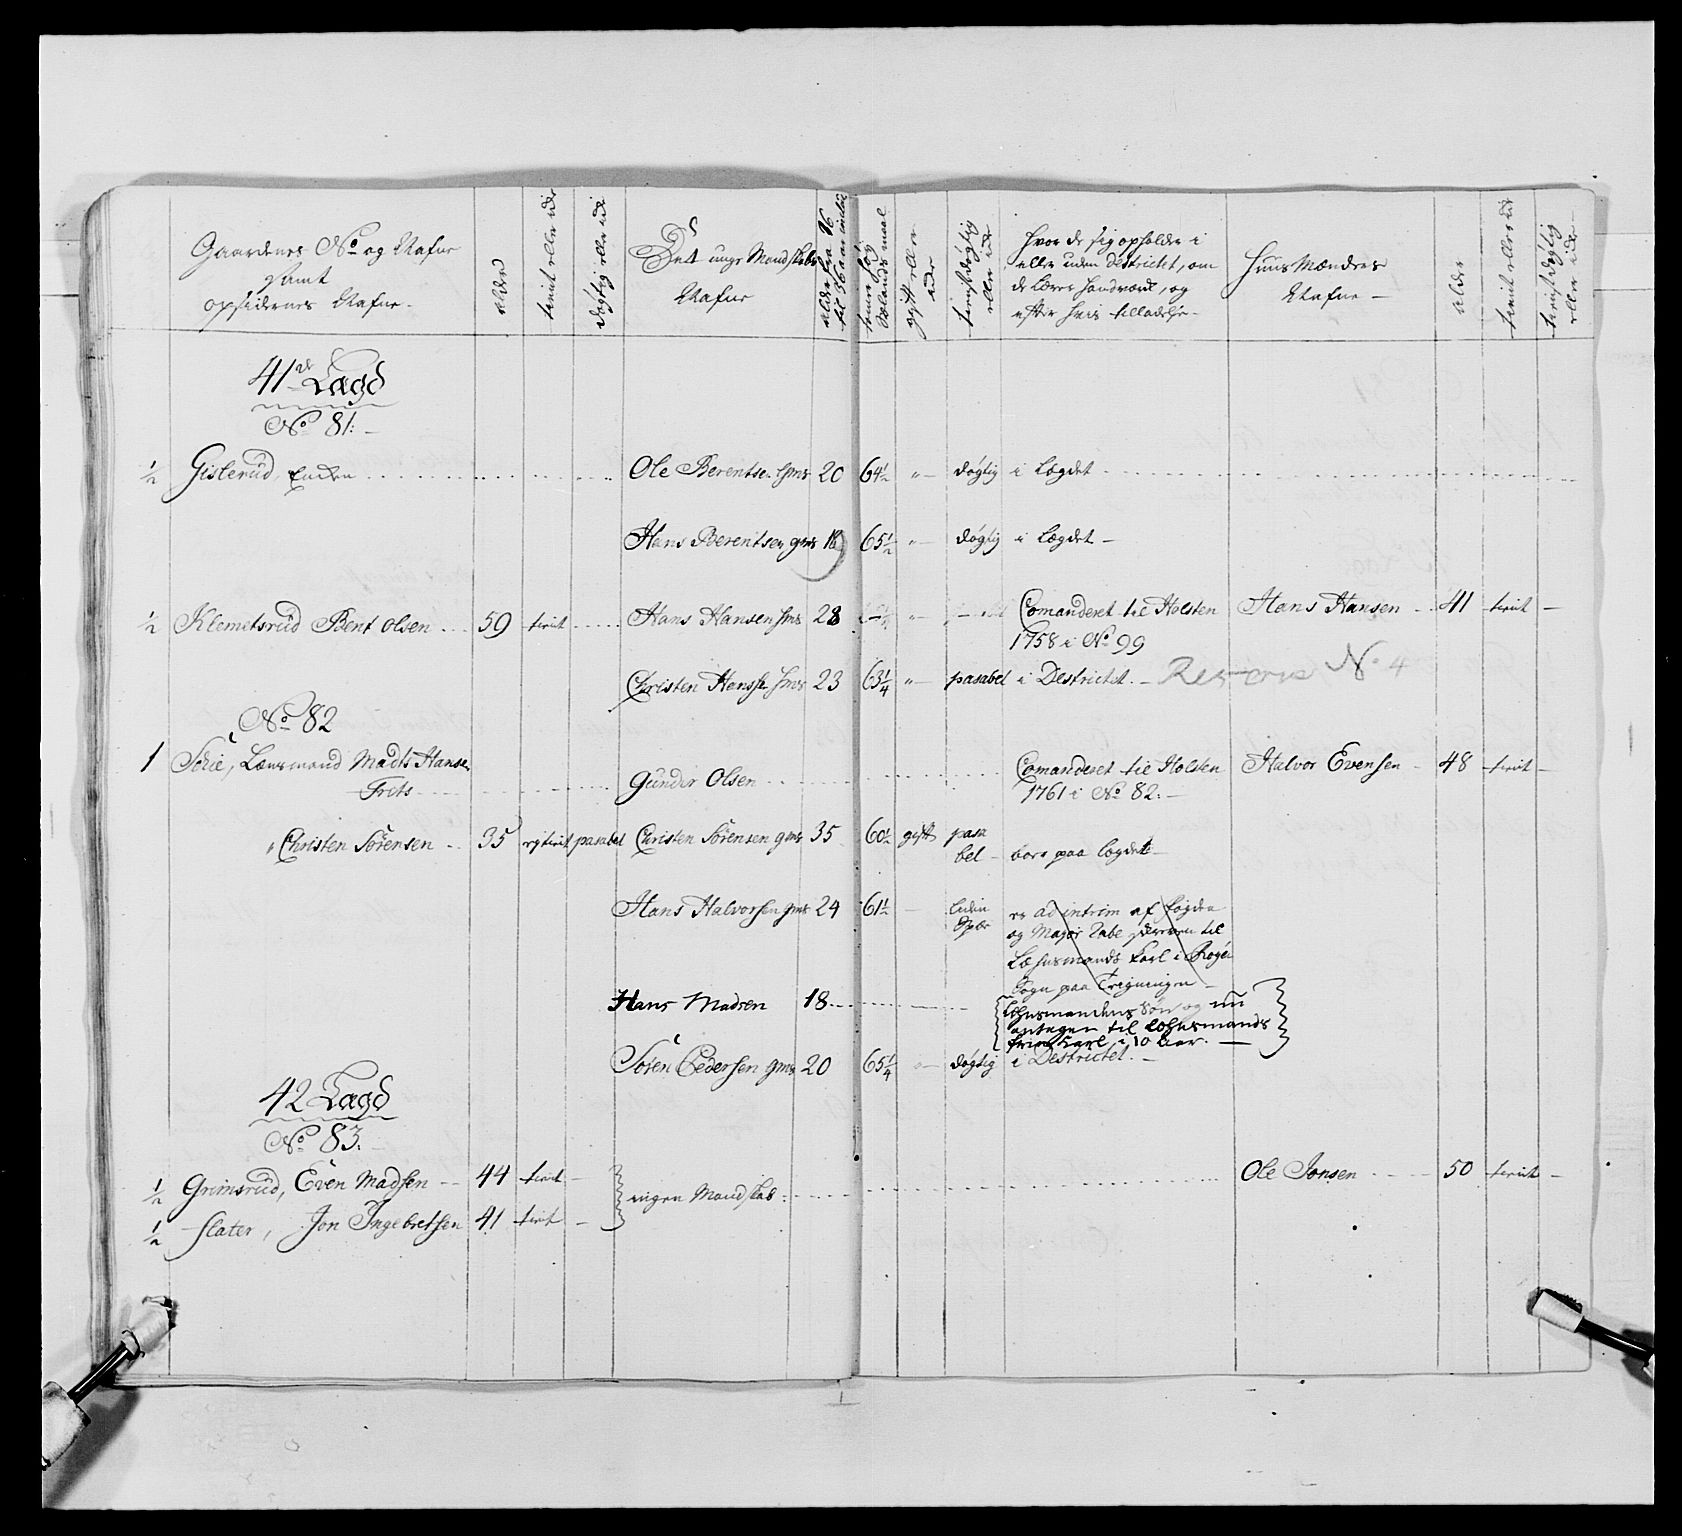 Gaardenes No og Nafne
samt
opsidernes Nafne
alder
tient elle ide
døgtig elle ide
Det unge Mandskabs
Nafne
alder fra 16
til 36 aar inclus
gift eller
ide
tienstdøgtig
eller ide
hvor de sig opholder i
eller uden Destrictet, om
de lærer Handværk, og
efter hvis tilladelse
Huus Mændenes
Nafne
alder
tient eller ide
tienstdøgtig
eller ide
41de Lægd
No 81:
1/2 Gisterud, Enken Ole Berentse. hms 20 64 1/2 døgtig i Lægdet
Hans Berentsen gms 18 65 1/2 døgtig i Lægdet
1/2 Klemetsrud Bent Olsen 59 tient Hans Hansen hms 28 Comanderet til Holsten Hans Hansen 41 tient
1758 i No 99
Christen Hansse hms 23 63 1/4 pasabel i Destrictet. Reserve No 4
No 82
1 Sørie, Lænsmand Madts Hansen
Frits
Gunder Olsen Comanderet til Holsten Halvor Evensen 48 tient
1761 i No 82.
Christen Sørensen 35 ey tient pasabel Christen Sørensen gms 35 60 1/2 gift pasa
bel boer paa Lægdet
Hans Halvorsen gms 24 61 1/2
er ad intrim af fogden
og Major Rabe til
Læhnsmands Karl i Røgen
Sogn paa
Hans Madsen 18
Lehnsmandens Søn og nu
antagen til Lehnsmands
Karl i 10 Aar.
Søren Pedersen gms 20 65 1/4 døgtig i Destrictet.
42 Lægd
No 83.
1/2 Grimsrud, Even Madsen 44 tient ingen Mandskab Ole Jonsen 50 tient
1/2 Slater, Jon Ingebretsen 41 tient